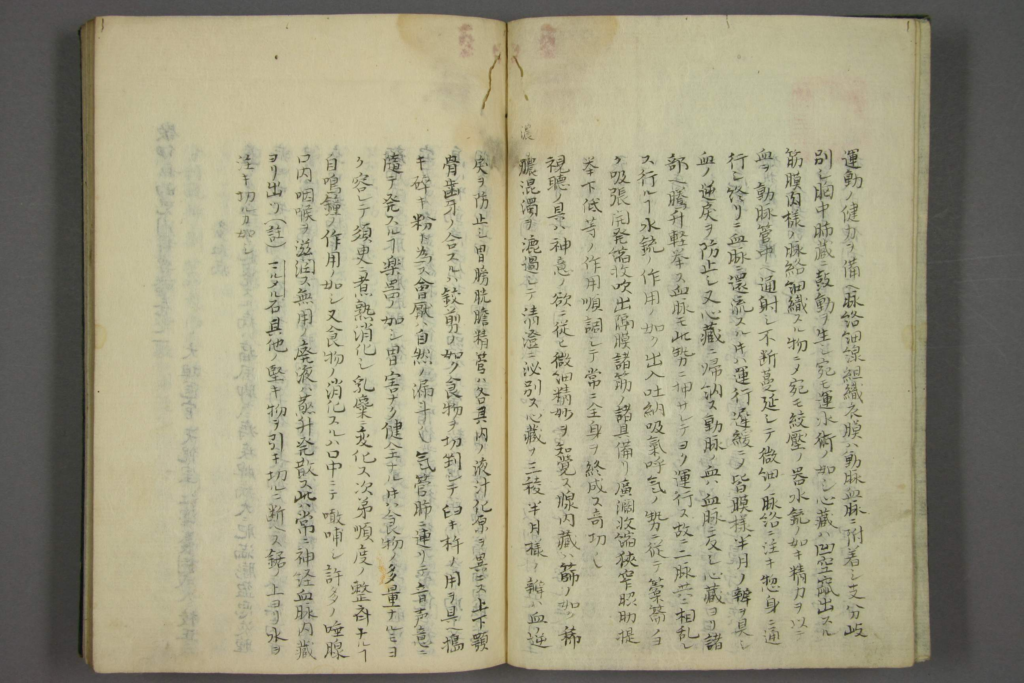 運動ノ健力ヲ備ヘ脉絡細線組織衣膜ハ動脉血脉ニ附着シ支分岐
別シ胸中肺藏ニ鼓動ヲ生シ宛モ運水術ノ如シ心藏ハ凹空竄出スル
筋膜肉様ノ脉絡細織スル物ニメ宛モ絞壓ノ器水銃ノ如キ精力ヲ以テ
血ヲ動脉管中ヘ通射シ不断蔓延シテ微細ノ脉絡ニ注キ惣身ニ通
行シ終リニ血脉ニ還流スルキハ運行遅緩ニメ皆膜様半月ノ辨ヲ具シ
血ノ逆戻ヲ防止シ又心藏ニ帰納ス動脉ノ血ハ血脉ニ反シ心藏ヨリ諸
部ヘ騰升軽挙ス血脉モ此勢ニ押サレテヨク運行ス故ニ二脉共ニ相乱レ
ス行ルヿ水銃ノ作用ノ如ク出入吐納吸氣呼气ノ勢ニ従テ藁籥ノヨ
ク吸張開発箔收吹出隔膜諸筋ノ諸具備リ廣濶收箔狹窄照助提
挙下低等ノ作用順調シテ常ニ全身ヲ終成ス奇功シ
視聴ノ具ハ神意ノ欲ニ従ヒ微細精妙ヲ知覚ス腺内藏ハ篩ノ如ク稀
膿混濁ヲ漉過シテ清澄ニ泌別ス心藏ノ三稜半月様ノ辨ハ血ノ逆
戻ヲ防止シ胃膀胱膽精管ハ各具内ノ液汁化源ヲ異ニス上下顎
骨齒牙ノ合スルハ鉸剪ノ如ク食物ヲ切判シテ臼キ杵ノ用ヲ具ヘ搗
キ碎キ粉ト為ス會厭ハ自然ノ漏斗ヒ气管肺ニ連リ音声意ニ
随テ発スルヿ楽器ノ如シ胃害ナク健全ナルキハ食物ノ多量ナルモヨ
ク容レテ須臾ニ煮熟消化シ乳糜ニ変化ス次弟順度ノ整斉ナルヿ
自鳴鐘ノ作用ノ如シ又食物ノ消化スルハ口中ニテ噉哺シ許多ノ唾腺
口内咽喉ヲ滋潤ス無用ノ廃液ハ蒸升発散ス此ハ常ニ神経血脉内藏
ヨリ出ツ(註)マルメル石具他ノ堅キ物ヲ引キ切ルニ断ヘス鋸ノ上ヨリ水ヲ
注キ切ル皆如シ